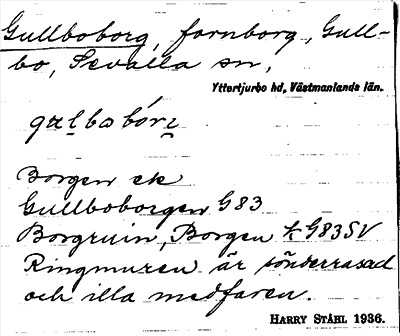 Gullboborg, fornborg, Gull-
bo, Sevalla sn,
Yttertjurbo hd, Västmanlands län.
Borgen ek
Gullboborgen G83
Borgruin, Borgen k G83SV
Ringmuren är sönderrasad
och illa medfaren.
HARRY STÅHL 1936.